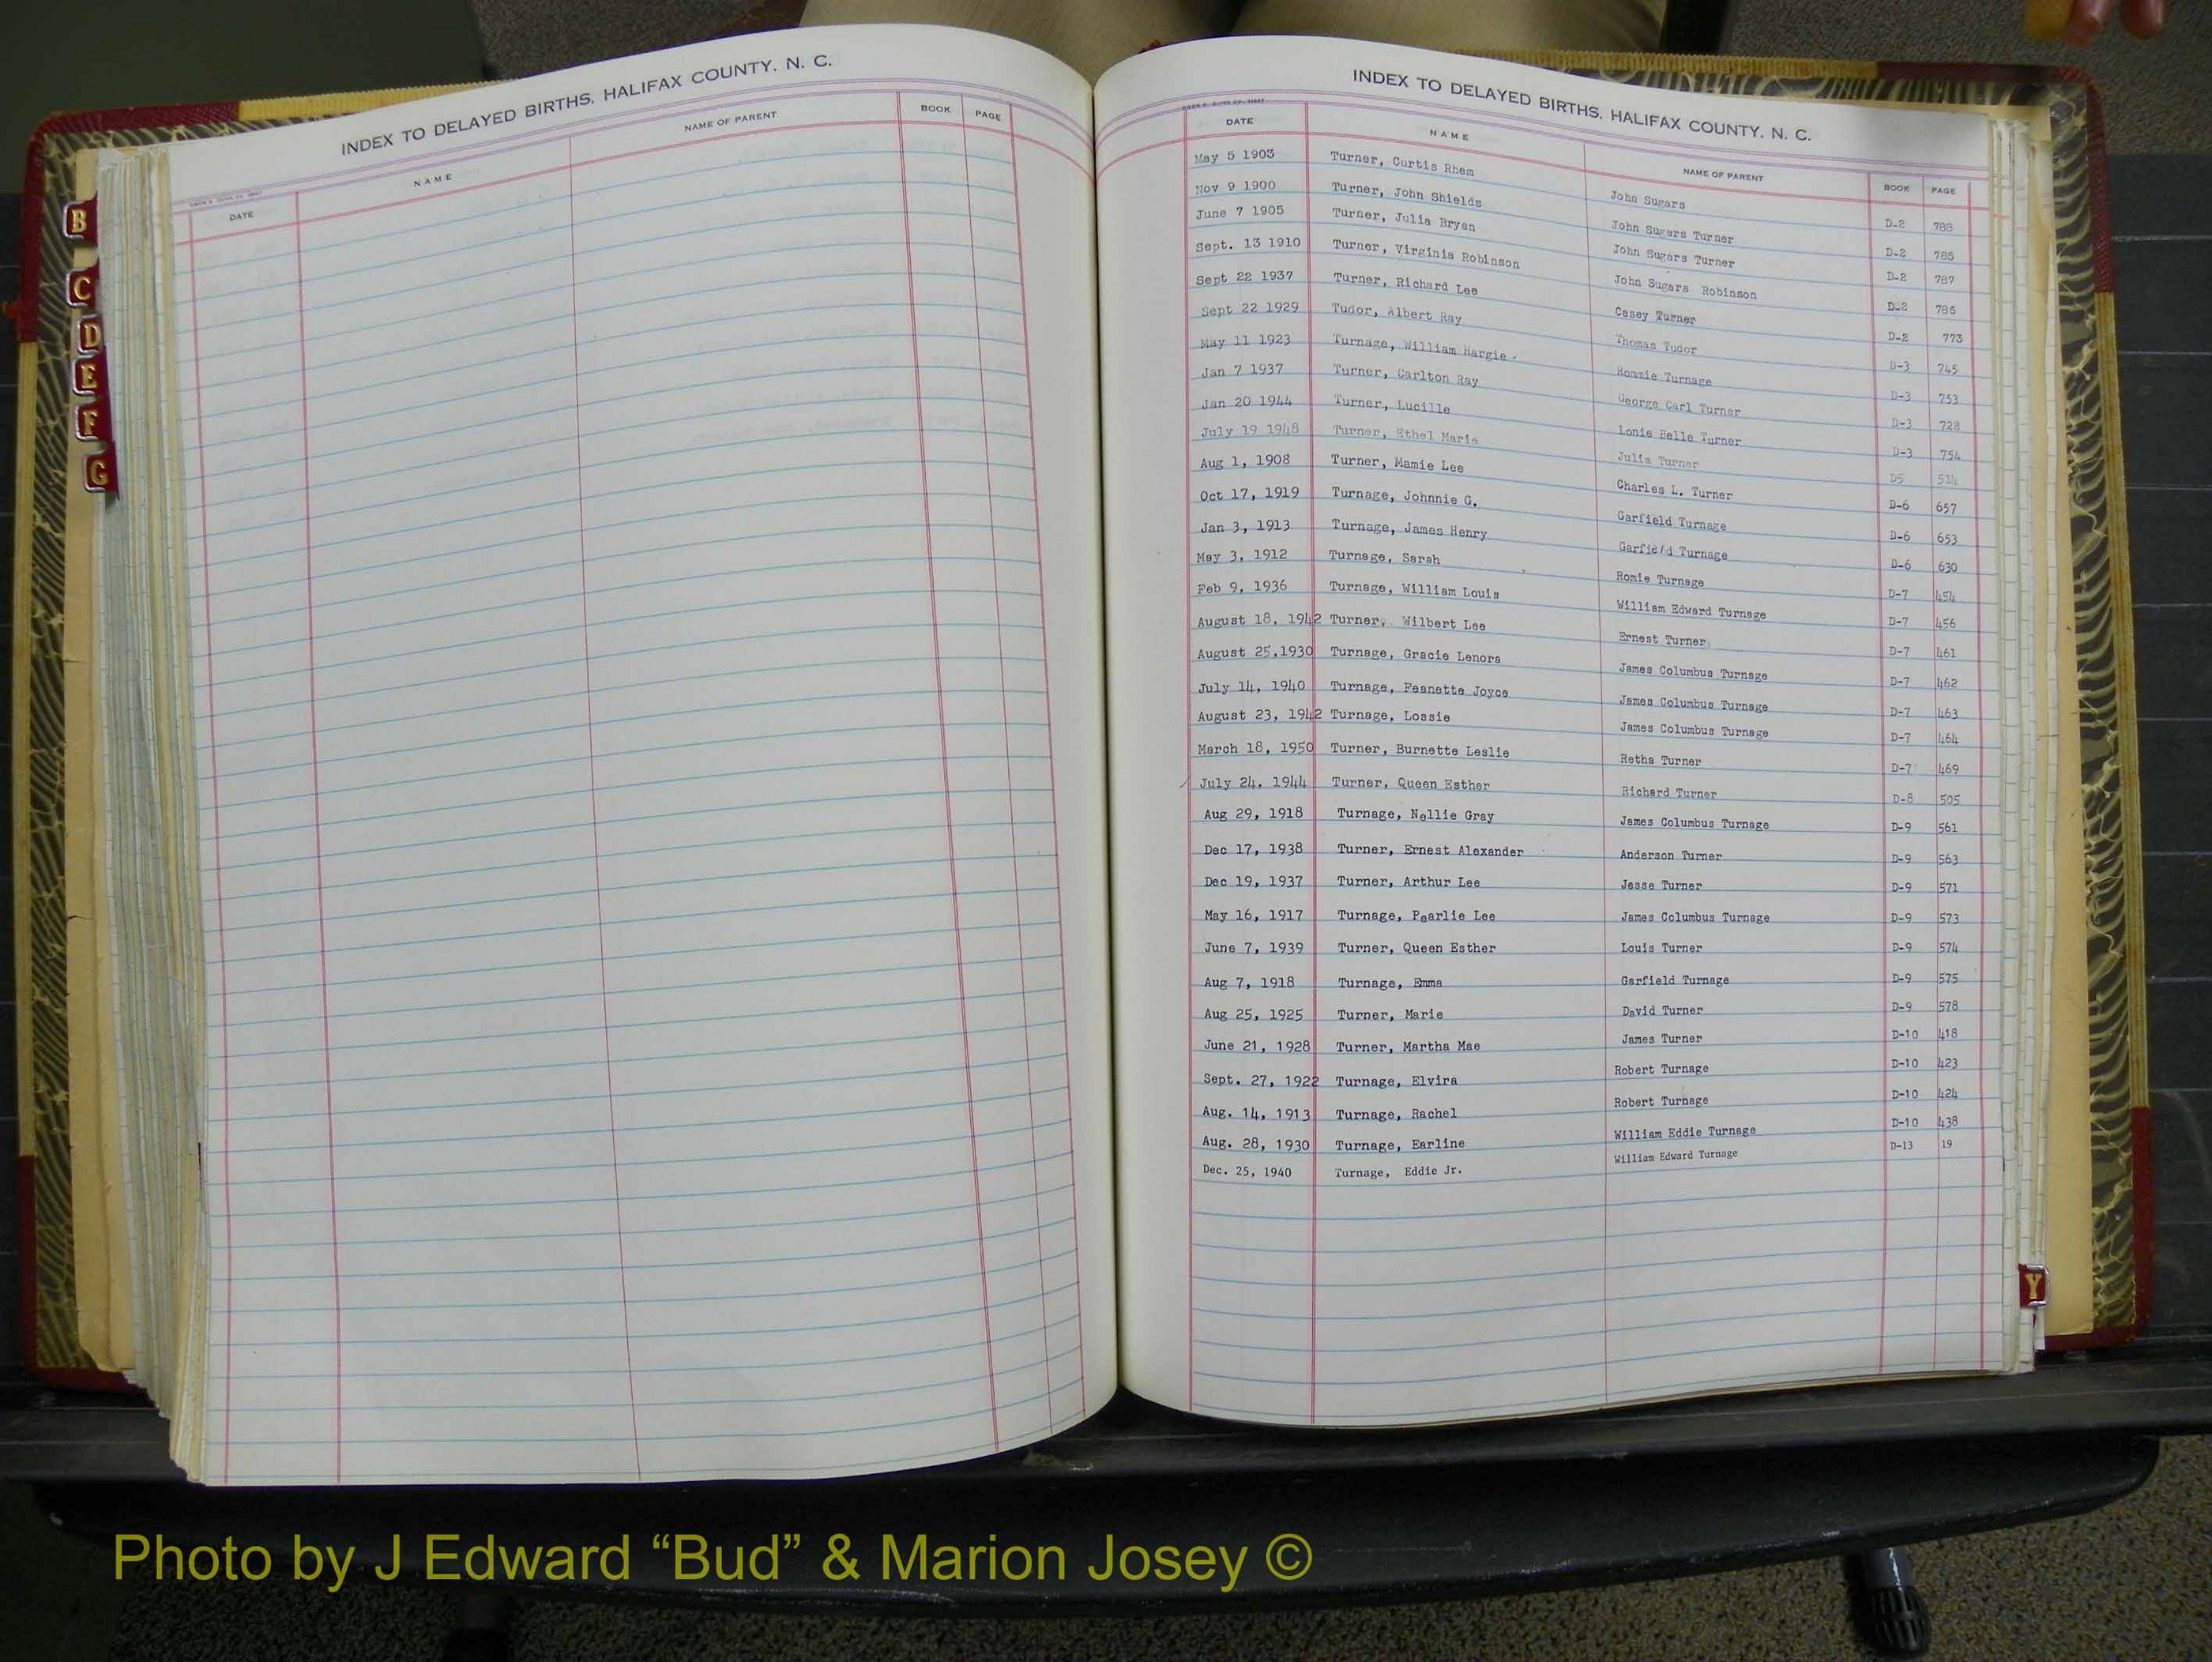 INDEX TO DELAYED BIRTHS, HALIFAX COUNTY, N. C.
DATE NAME NAME OF PARENT BOOK PAGE
INDEX TO DELAYED BIRTHS, HALIFAX COUNTY, N. C.
DATE NAME NAME OF PARENT BOOK PAGE
May 5 1903 Turner, Curtis Rhem John Sugars D-2 788
Nov 9 1900 Turner, John Shields John Sugars Turner D-2 785
June 7 1905 Turner, Julia Bryan John Sugars Turner D-2 787
Sept. 13 1910 Turner, Virginia Robinson John Sugars Robinson D-2 786
Sept 22 1937 Turner, Richard Lee Casey Turner D-2 773
Sept 22 1929 Tudor, Albert Ray Thomas Tudor D-3 745
May 11 1923 Turnage, William Hargie Rommie Turnage D-3 753
Jan 7 1937 Turner, Carlton Ray George Carl Turner D-3 728
Jan 20 1944 Turner, Lucille Lonie Belle Turner D-3 754
July 19 1948 Turner, Ethel Marie Julia Turner D5
Aug 1, 1908 Turner, Mamie Lee Charles L. Turner D-6 657
Oct 17, 1919 Turnage, Johnnie G. Garfield Turnage D-6 653
Jan 3, 1913 Turnage, James Henry Garfield Turnage D-6 630
May 3, 1912 Turnage, Sarah Romie Turnage D-7 454
Feb 9, 1936 Turnage, William Louis William Edward Turnage D-7 456
August 18, 1942 Turner, Wilbert Lee Ernest Turner D-7 461
August 25,1930 Turnage, Gracie Lenora James Columbus Turnage D-7 462
July 14, 1940 Turnage, Feanette Joyce James Columbus Turnage D-7 463
August 23, 1942 Turnage, Lossie James Columbus Turnage D-7 464
March 18, 1950 Turner, Burnette Leslie Retha Turner D-7 469
July 24, 1944 Turner, Queen Esther Richard Turner D-8 505
Aug 29, 1918 Turnage, Nellie Gray James Columbus Turnage D-9 561
Dec 17, 1938 Turner, Ernest Alexander Anderson Turner D-9 563
Dec 19, 1937 Turner, Arthur Lee Jesse Turner D-9 571
May 16, 1917 Turnage, Pearlie Lee James Columbus Turnage D-9 573
June 7, 1939 Turner, Queen Esther Louis Turner D-9 574
Aug 7, 1918 Turnage, Emma Garfield Turnage D-9 575
Aug 25, 1925 Turner, Marie David Turner D-9 578
June 21, 1928 Turner, Martha Mae James Turner D-10 418
Sept. 27, 1922 Turnage, Elvira Robert Turnage D-10 423
Aug. 14, 1913 Turnage, Rachel Robert Turnage D-10 424
Aug. 28, 1930 Turnage, Earline William Eddie Turnage D-10 438
Dec. 25, 1940 Turnage, Eddie Jr. William Edward Turnage D-13 19
B
C
D
E
F
G
Y
Photo by J Edward “Bud” & Marion Josey ©